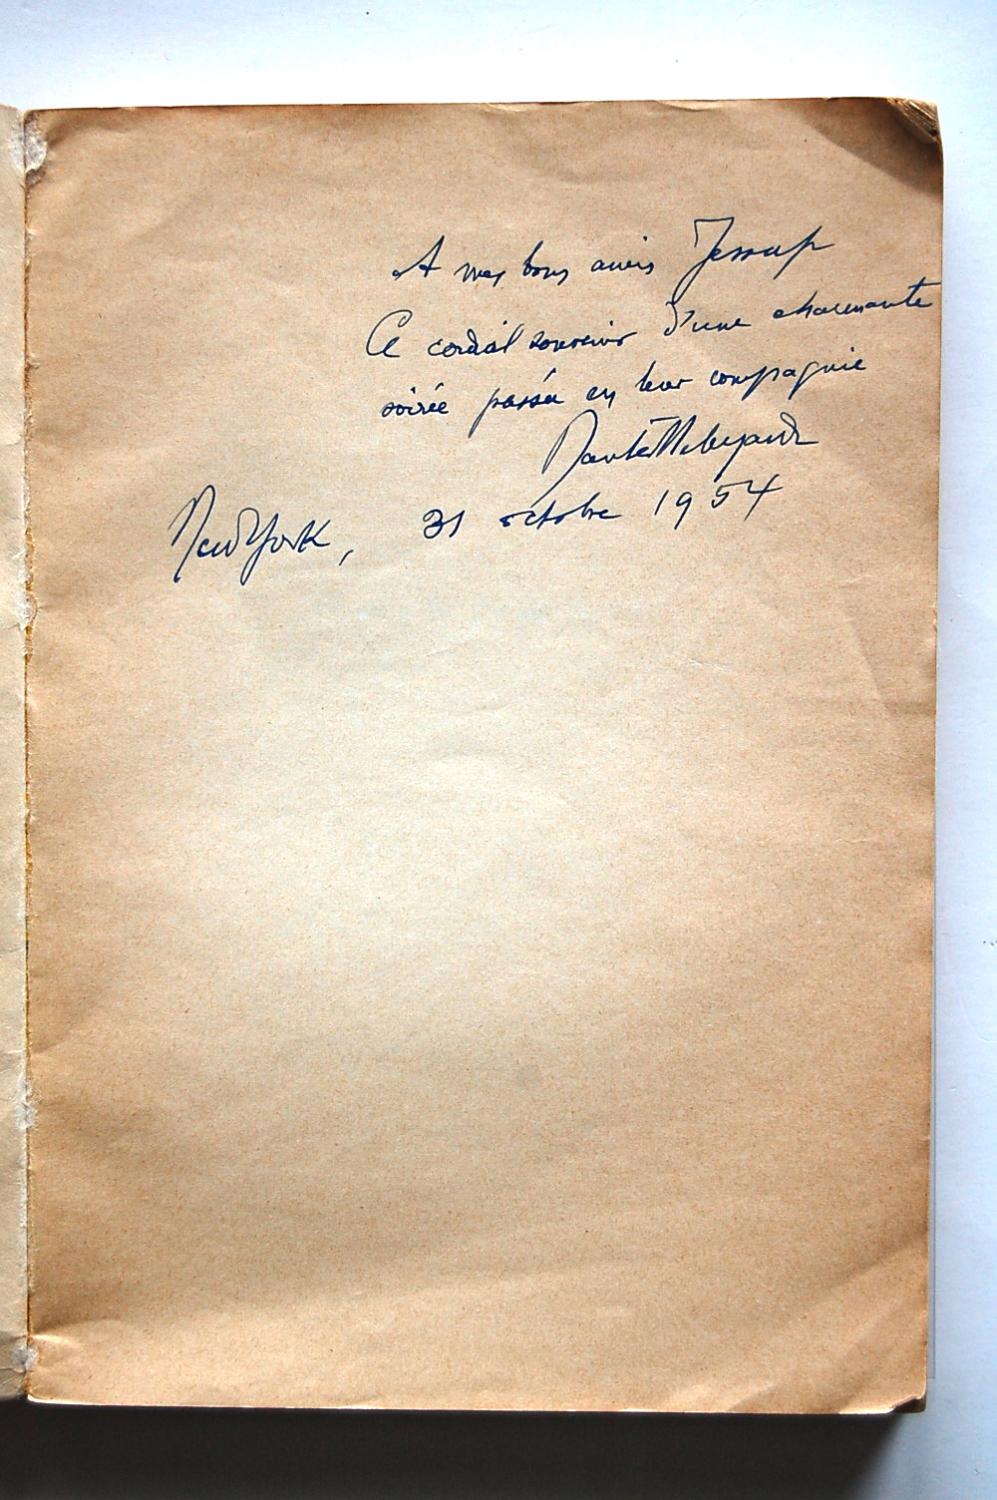 A mes bons amis Jessup
Ce cordial souvenir d'une charmante
soirée passée en leur compagnie
New York, 31 octobre 1954